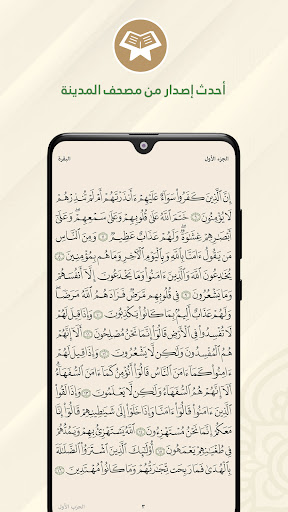 أحدث إصدار من مصحف المدينة
الجزء الأول
البقرة
إِنَّ ٱلَّذِينَ كَفَرُوا۟ سَوَآءٌ عَلَيْهِمْ ءَأَنذَرْتَهُمْ أَمْ لَمْ تُنذِرْهُمْ
لَا يُؤْمِنُونَ ٦ خَتَمَ ٱللَّهُ عَلَىٰ قُلُوبِهِمْ وَعَلَىٰ سَمْعِهِمْ وَعَلَىٰٓ
أَبْصَٰرِهِمْ غِشَٰوَةٌ وَلَهُمْ عَذَابٌ عَظِيمٌ ٧ وَمِنَ ٱلنَّاسِ
مَن يَقُولُ ءَامَنَّا بِٱللَّهِ وَبِٱلْيَوْمِ ٱلْءَاخِرِ وَمَا هُم بِمُؤْمِنِينَ ٨
يُخَٰدِعُونَ ٱللَّهَ وَٱلَّذِينَ ءَامَنُوا۟ وَمَا يَخْدَعُونَ إِلَّآ أَنفُسَهُمْ
وَمَا يَشْعُرُونَ ٩ فِى قُلُوبِهِم مَّرَضٌ فَزَادَهُمُ ٱللَّهُ مَرَضًا
وَلَهُمْ عَذَابٌ أَلِيمٌۢ بِمَا كَانُوا۟ يَكْذِبُونَ ١٠ وَإِذَا قِيلَ لَهُمْ
لَا تُفْسِدُوا۟ فِى ٱلْأَرْضِ قَالُوٓا۟ إِنَّمَا نَحْنُ مُصْلِحُونَ ١١ أَلَآ إِنَّهُمْ
هُمُ ٱلْمُفْسِدُونَ وَلَٰكِن لَّا يَشْعُرُونَ ١٢ وَإِذَا قِيلَ لَهُمْ
ءَامِنُوا۟ كَمَآ ءَامَنَ ٱلنَّاسُ قَالُوٓا۟ أَنُؤْمِنُ كَمَآ ءَامَنَ ٱلسُّفَهَآءُ
أَلَآ إِنَّهُمْ هُمُ ٱلسُّفَهَآءُ وَلَٰكِن لَّا يَعْلَمُونَ ١٣ وَإِذَا لَقُوا۟
ٱلَّذِينَ ءَامَنُوا۟ قَالُوٓا۟ ءَامَنَّا وَإِذَا خَلَوْا۟ إِلَىٰ شَيَٰطِينِهِمْ قَالُوٓا۟ إِنَّا
مَعَكُمْ إِنَّمَا نَحْنُ مُسْتَهْزِءُونَ ١٤ ٱللَّهُ يَسْتَهْزِئُ بِهِمْ وَيَمُدُّهُمْ
فِى طُغْيَٰنِهِمْ يَعْمَهُونَ ١٥ أُو۟لَٰٓئِكَ ٱلَّذِينَ ٱشْتَرَوُا۟ ٱلضَّلَٰلَةَ
بِٱلْهُدَىٰ فَمَا رَبِحَت تِّجَٰرَتُهُمْ وَمَا كَانُوا۟ مُهْتَدِينَ ١٦
٣
الحزب الأول